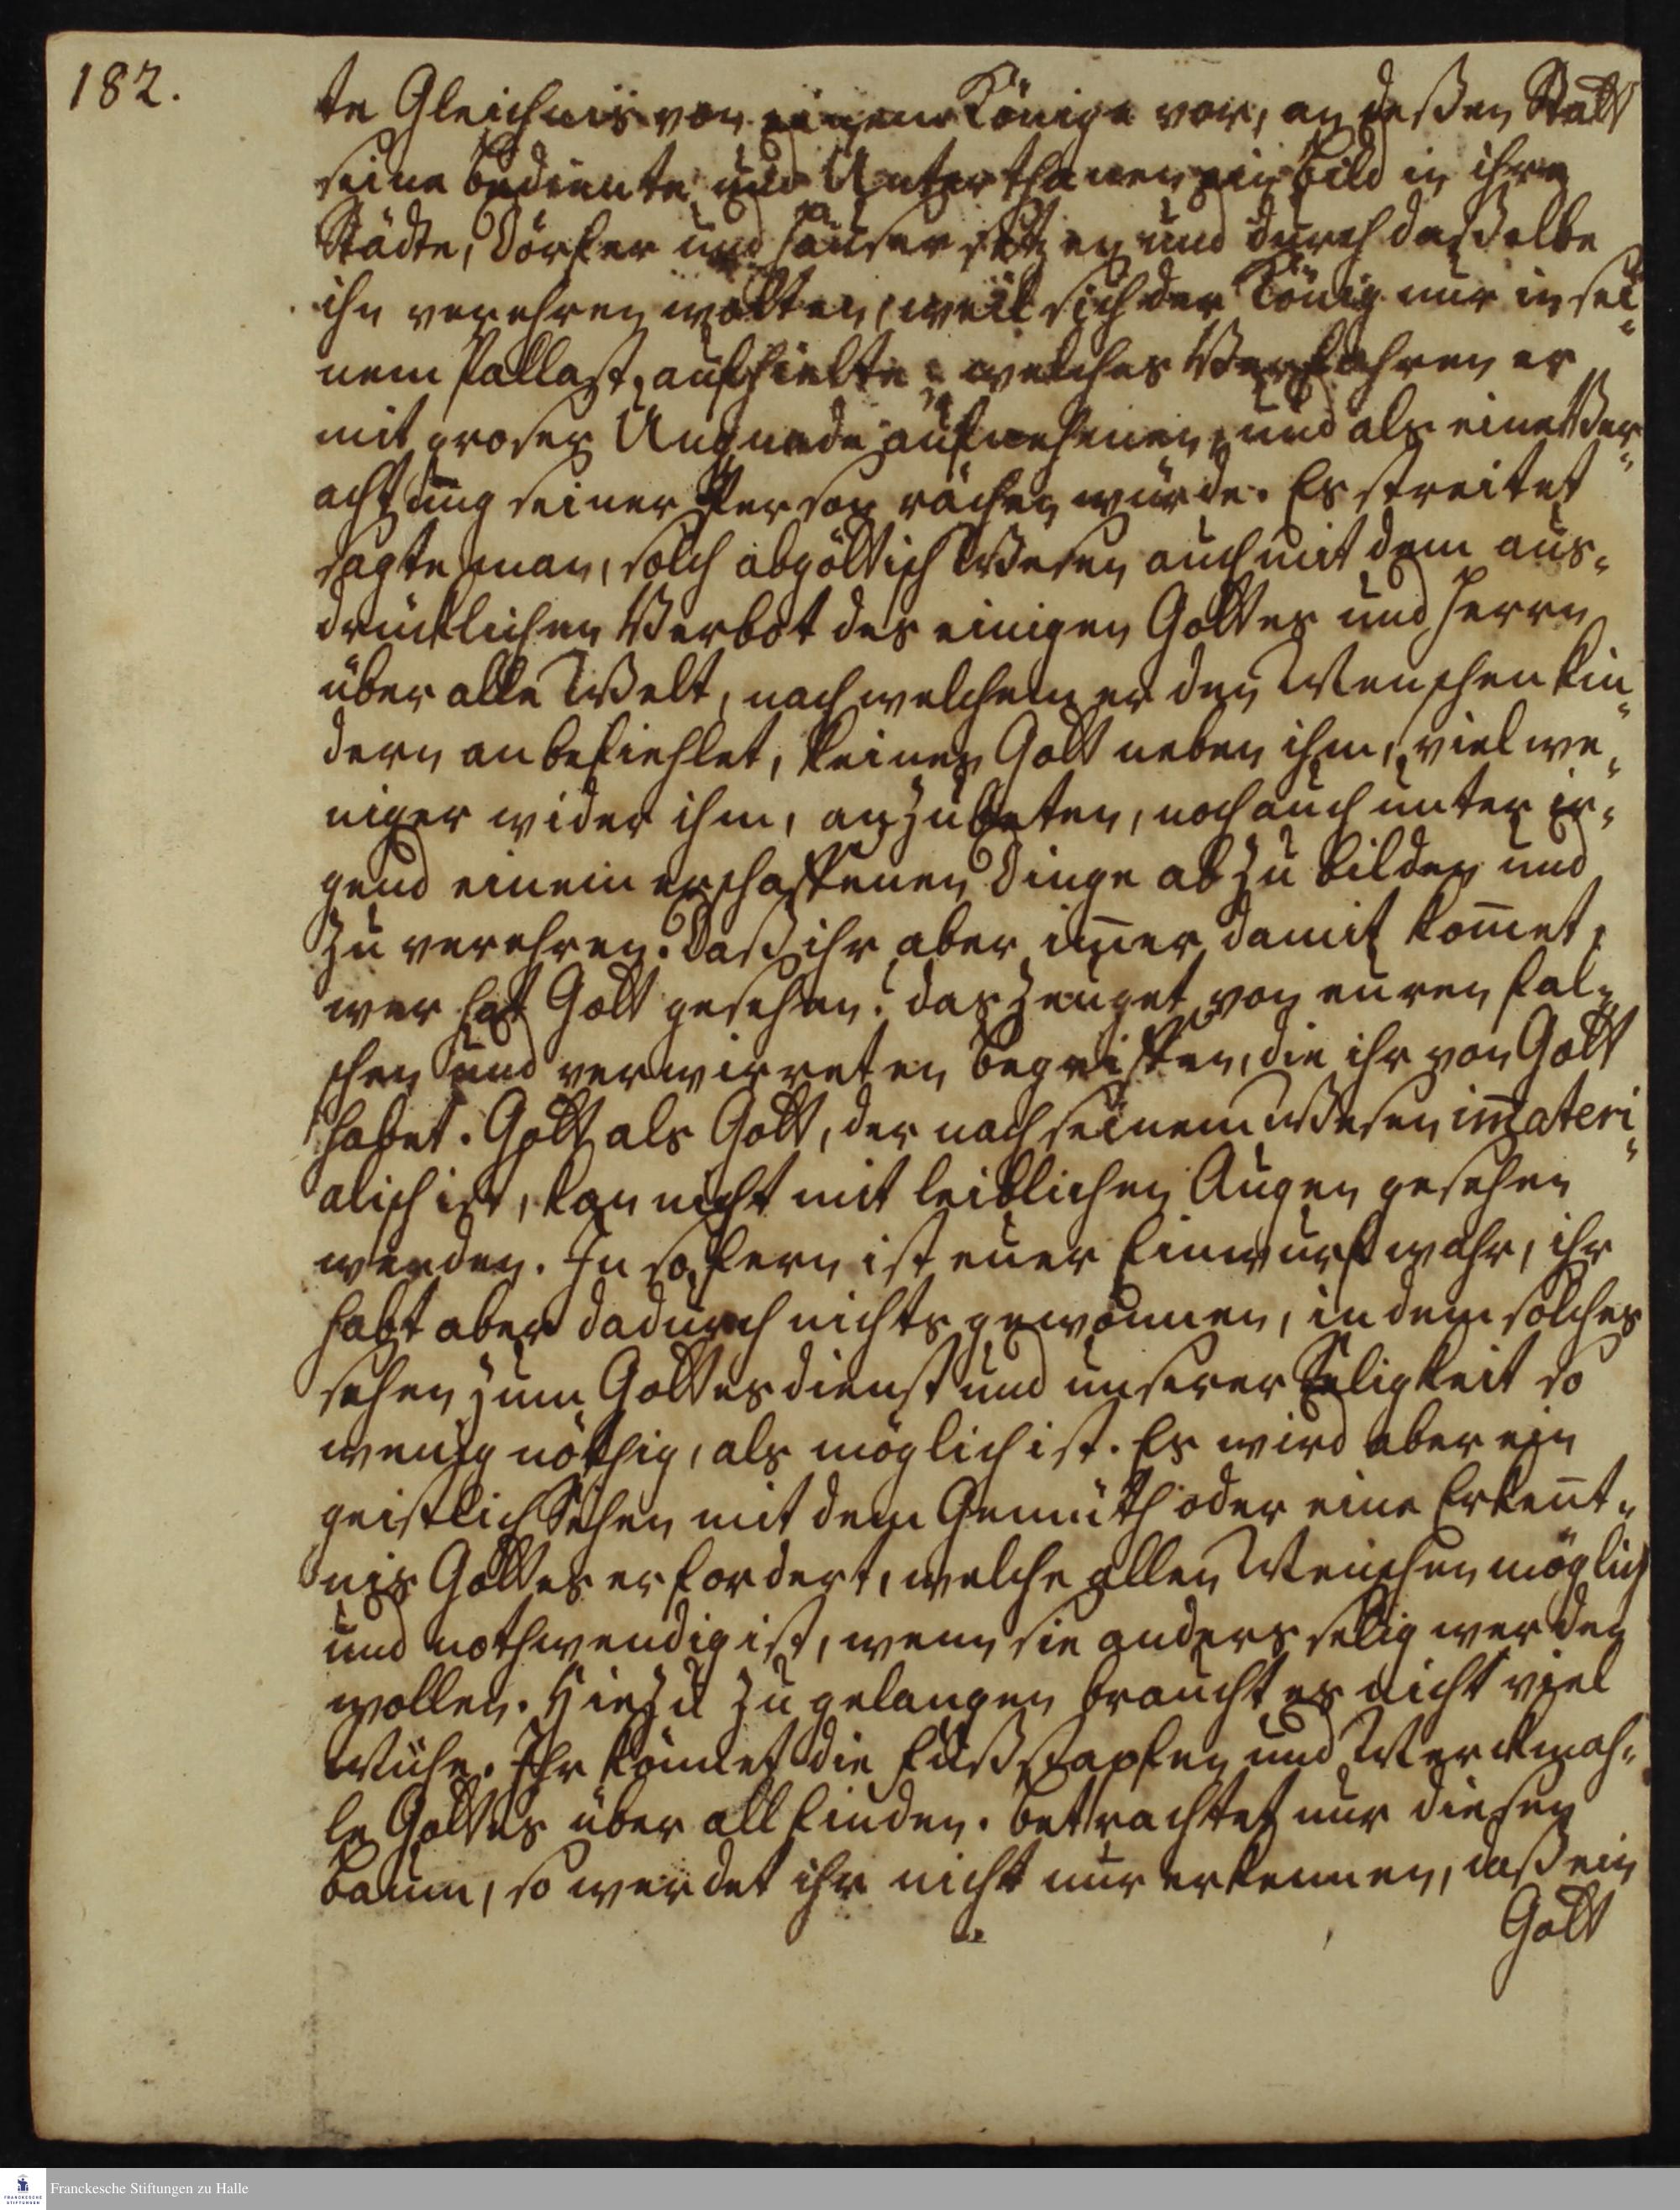 182.
te Gleichnis von einem Könige vor, an deßen Statt
seine Bediente und Unterthanen ein Bild in ihre
Städte, Dörfer und Häuser setzen und durch daßelbe
ihn verehren wolten, weil sich der König nur in sei„
nem Pallast, aufhielte: welches Verfahren er
mit groser Ungnade aufnehmen, und als eine Ver„
achtung seiner Person rächen würde. Es streitet
sagte man, solch abgöttisch Wesen auch mit dem aus„
drücklichen Verbot des einigen Gottes und Herrn
über alle Welt, nach welchem er den Menschen Kin„
dern anbefiehlet, keinen Gott neben ihm, viel we„
niger wider ihm, anzubeten, noch auch unter ir„
gend einem erschaffenen Dinge abzubilden und
zu verehren. Daß ihr aber im̄er damit kom̄et,
wer hat Gott gesehen? das zeuget von euren fal„
schen und verwirreten Begriffen, die ihr von Gott
habet. Gott als Gott, der nach seinem Wesen im̄ateri„
alisch ist, kan nicht mit leiblichen Augen gesehen
werden. In sofern ist euer Einwurf wahr, ihr
habt aber dadurch nichts gewonnen, indem solches
sehen zum Gottesdienst und unserer Seligkeit so
wenig nöthig, als möglich ist. Es wird aber ein
geistlich Sehen mit dem Gemüth oder eine Erken̄t„
nis Gottes erfordert, welche allen Menschen möglich
und nothwendig ist, wenn sie anders selig werden
wollen. Hiezu zu gelangen braucht es nicht viel
Mühe. Ihr könnet die Fußstapfen und Merckmah„
le Gottes überall finden. Betrachtet nur diesen
Baum, so werdet ihr nicht nur erkennen, daß ein
Gott
Franckesche Stiftungen zu Halle